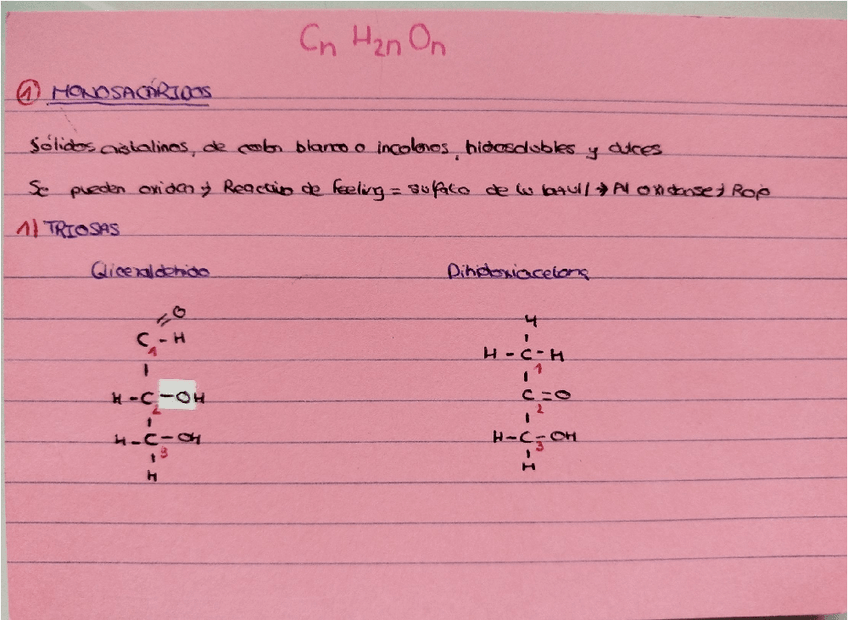 Cn H2n On
① MONOSACÁRIDOS
Sólidos cristalinos, de color blanco o incoloros, hidrosolubles y dulces
Se pueden oxidar → Reactivo de Feeling = sulfato de Cu (azul) → Al oxidarse → Rojo
1) TRIOSAS
Gliceraldehido Dihidroxiacetona
O H
C - H H - C - H
1 1
H - C - OH C = O
2 2
H - C - OH H - C - OH
3 3
H H